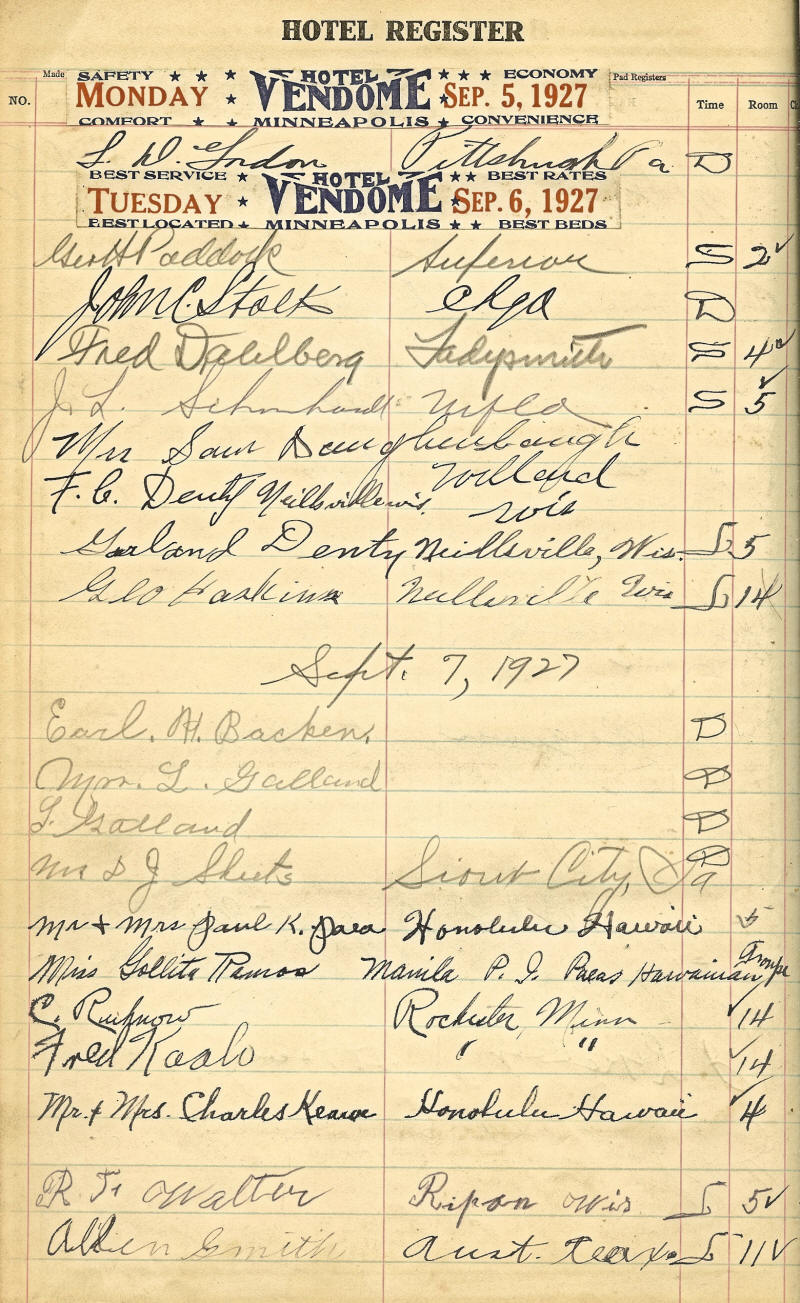 HOTEL REGISTER
Made Pad Registers
NO. Time Room
SAFETY ★ ★ ★ HOTEL ★ ★ ★ ECONOMY
MONDAY ★ VENDOME ★ SEP. 5, 1927
COMFORT ★ ★ MINNEAPOLIS ★ CONVENIENCE
L. D. Gordon Pittsburgh Pa D
BEST SERVICE ★ HOTEL ★★ BEST RATES
TUESDAY ★ VENDOME ★ SEP. 6, 1927
BEST LOCATED ★ MINNEAPOLIS ★ ★ BEST BEDS
Geo H Paddock Superior S 2
John C. Stolk Chgo D
Fred Dahlberg Ladysmith S 4
J. L. Mpls S 5
Mrs Sam Daughenbaugh
Willard
F. C. Denty Neillsville wis.
Wis
Garland Denty Neillsville, Wis. S 5
Geo Haskins Neillsville Wis S 14
Sept. 7, 1927
Earl. H. Backen. D
Mrs. L. Galland D
L. Galland D
J Sheets Sioux City, Ia D
Mr + Mrs Paul K. Honolulu Hawaii 5
Miss Gollita Ramos Manila P. I. Paeas Hawaiian Troupe
C. Rochester, Minn 14
Fred " " 14
Mr. & Mrs. Charles Keawe Honolulu Hawaii 4
R Walter Ripon Wis S 5
Allen Smith Aust. Texas S 11